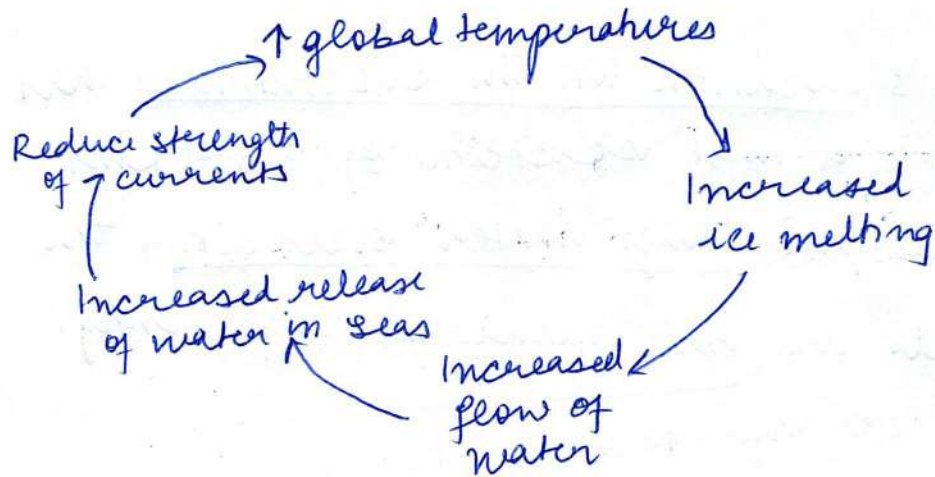 ↑ global temperatures
Increased
ice melting
Increased
flow of
water
Increased release
of water in seas
Reduce strength
of currents